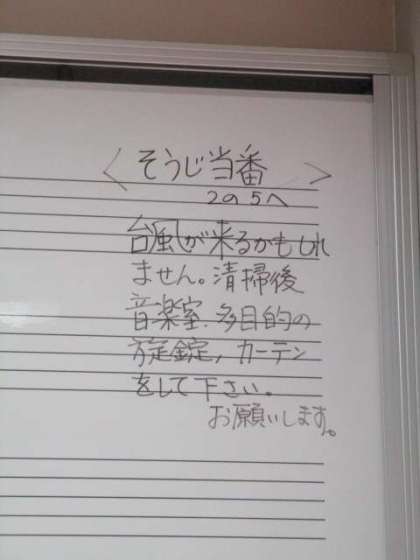 <そうじ当番>
2の5へ
台風が来るかもしれ
ません。清掃後
音楽室、多目的の
施錠、カーテン
をして下さい。
お願いします。